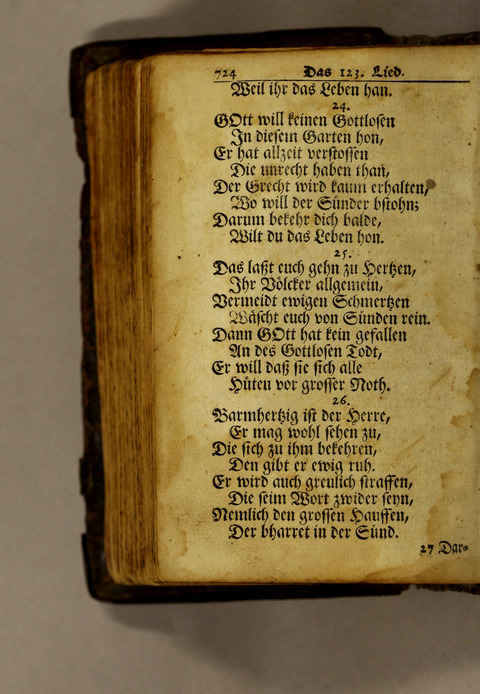 724 Das 123. Lied.
Weil ihr das Leben han.
24.
GOtt will keinen Gottlosen
In diesem Garten hon,
Er hat allzeit verstossen
Die unrecht haben than,
Der Grecht wird kaum erhalten,
Wo will der Sünder bstohn;
Darum bekehr dich balde,
Wilt du das Leben hon.
25.
Das laßt euch gehn zu Hertzen,
Ihr Völcker allgemein,
Vermeidt ewigen Schmertzen
Wäscht euch von Sünden rein.
Dann GOtt hat kein gefallen
An des Gottlosen Todt,
Er will daß sie sich alle
Hüten vor grosser Noth.
26.
Barmhertzig ist der Herre,
Er mag wohl sehen zu,
Die sich zu ihm bekehren,
Den gibt er ewig ruh.
Er wird auch greulich straffen,
Die seim Wort zwider seyn,
Nemlich den grossen Hauffen,
Der bharret in der Sünd.
27 Dar=